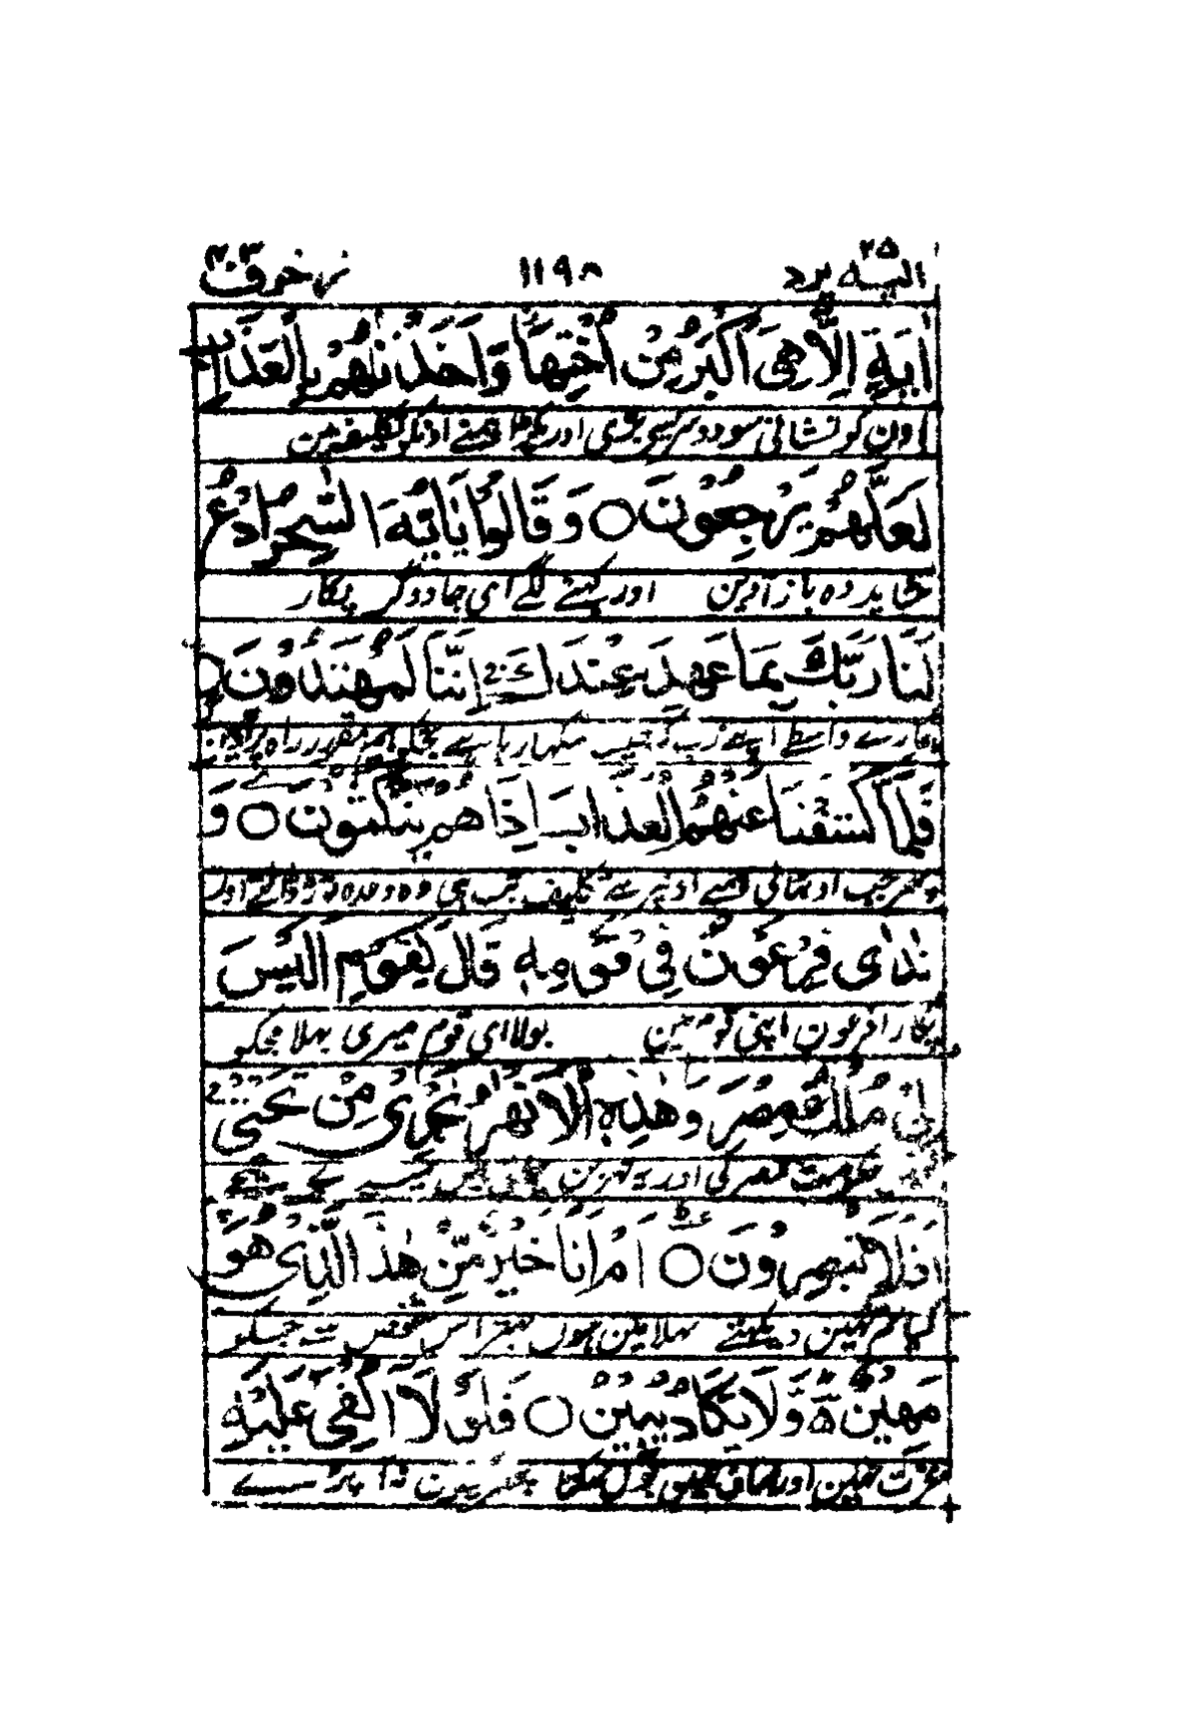 الیہ یرد ۲۵ ۱۱۹۸ زخرف ۴۳
اٰیَةٍ اِلَّا هِیَ اَکْبَرُ مِنْ اُخْتِهَا وَاَخَذْنٰهُمْ بِالْعَذَابِ
اون کو نشانی سو دوسری سے بڑی اور پکڑا ہمنے اونکو تکلیف مین
لَعَلَّهُمْ یَرْجِعُوْنَ ○ وَقَالُوْا یٰاَیُّهَ السّٰحِرُ ادْعُ
شاید وہ باز آوین اور کہنے لگے ای جادوگر پکار
لَنَا رَبَّكَ بِمَا عَهِدَ عِنْدَكَ اِنَّنَا لَمُهْتَدُوْنَ ○
ہمارے واسطے اپنے رب کو جیسا سکھا رہا ہے تجکو ہم مقرر راہ پر آوین
فَلَمَّا كَشَفْنَا عَنْهُمُ الْعَذَابَ اِذَا هُمْ یَنْكُثُوْنَ ○ وَ
پھر جب اوٹھائی ہمنے اونپر سے تکلیف تب ہی وہ وعدہ توڑ ڈالتے اور
نَادٰی فِرْعَوْنُ فِیْ قَوْمِهٖ قَالَ یٰقَوْمِ اَلَیْسَ
پکارا فرعون اپنی قوم مین بولا ای قوم میری بھلا مجکو
لِیْ مُلْكُ مِصْرَ وَهٰذِهِ الْاَنْهٰرُ تَجْرِیْ مِنْ تَحْتِیْ
حکومت مصر کی اور یہ نہرین میرے نیچے
اَفَلَا تُبْصِرُوْنَ ○ اَمْ اَنَا خَیْرٌ مِّنْ هٰذَا الَّذِیْ هُوَ
کیا تم نہین دیکھتے بھلا مین ہون بہتر اس شخص سے جسکو
مَهِیْنٌ وَّلَا یَكَادُ یُبِیْنُ ○ فَلَوْلَا اُلْقِیَ عَلَیْهِ
عزت نہین اور صاف نہین بول سکتا پھر کیون نہ آ پڑے